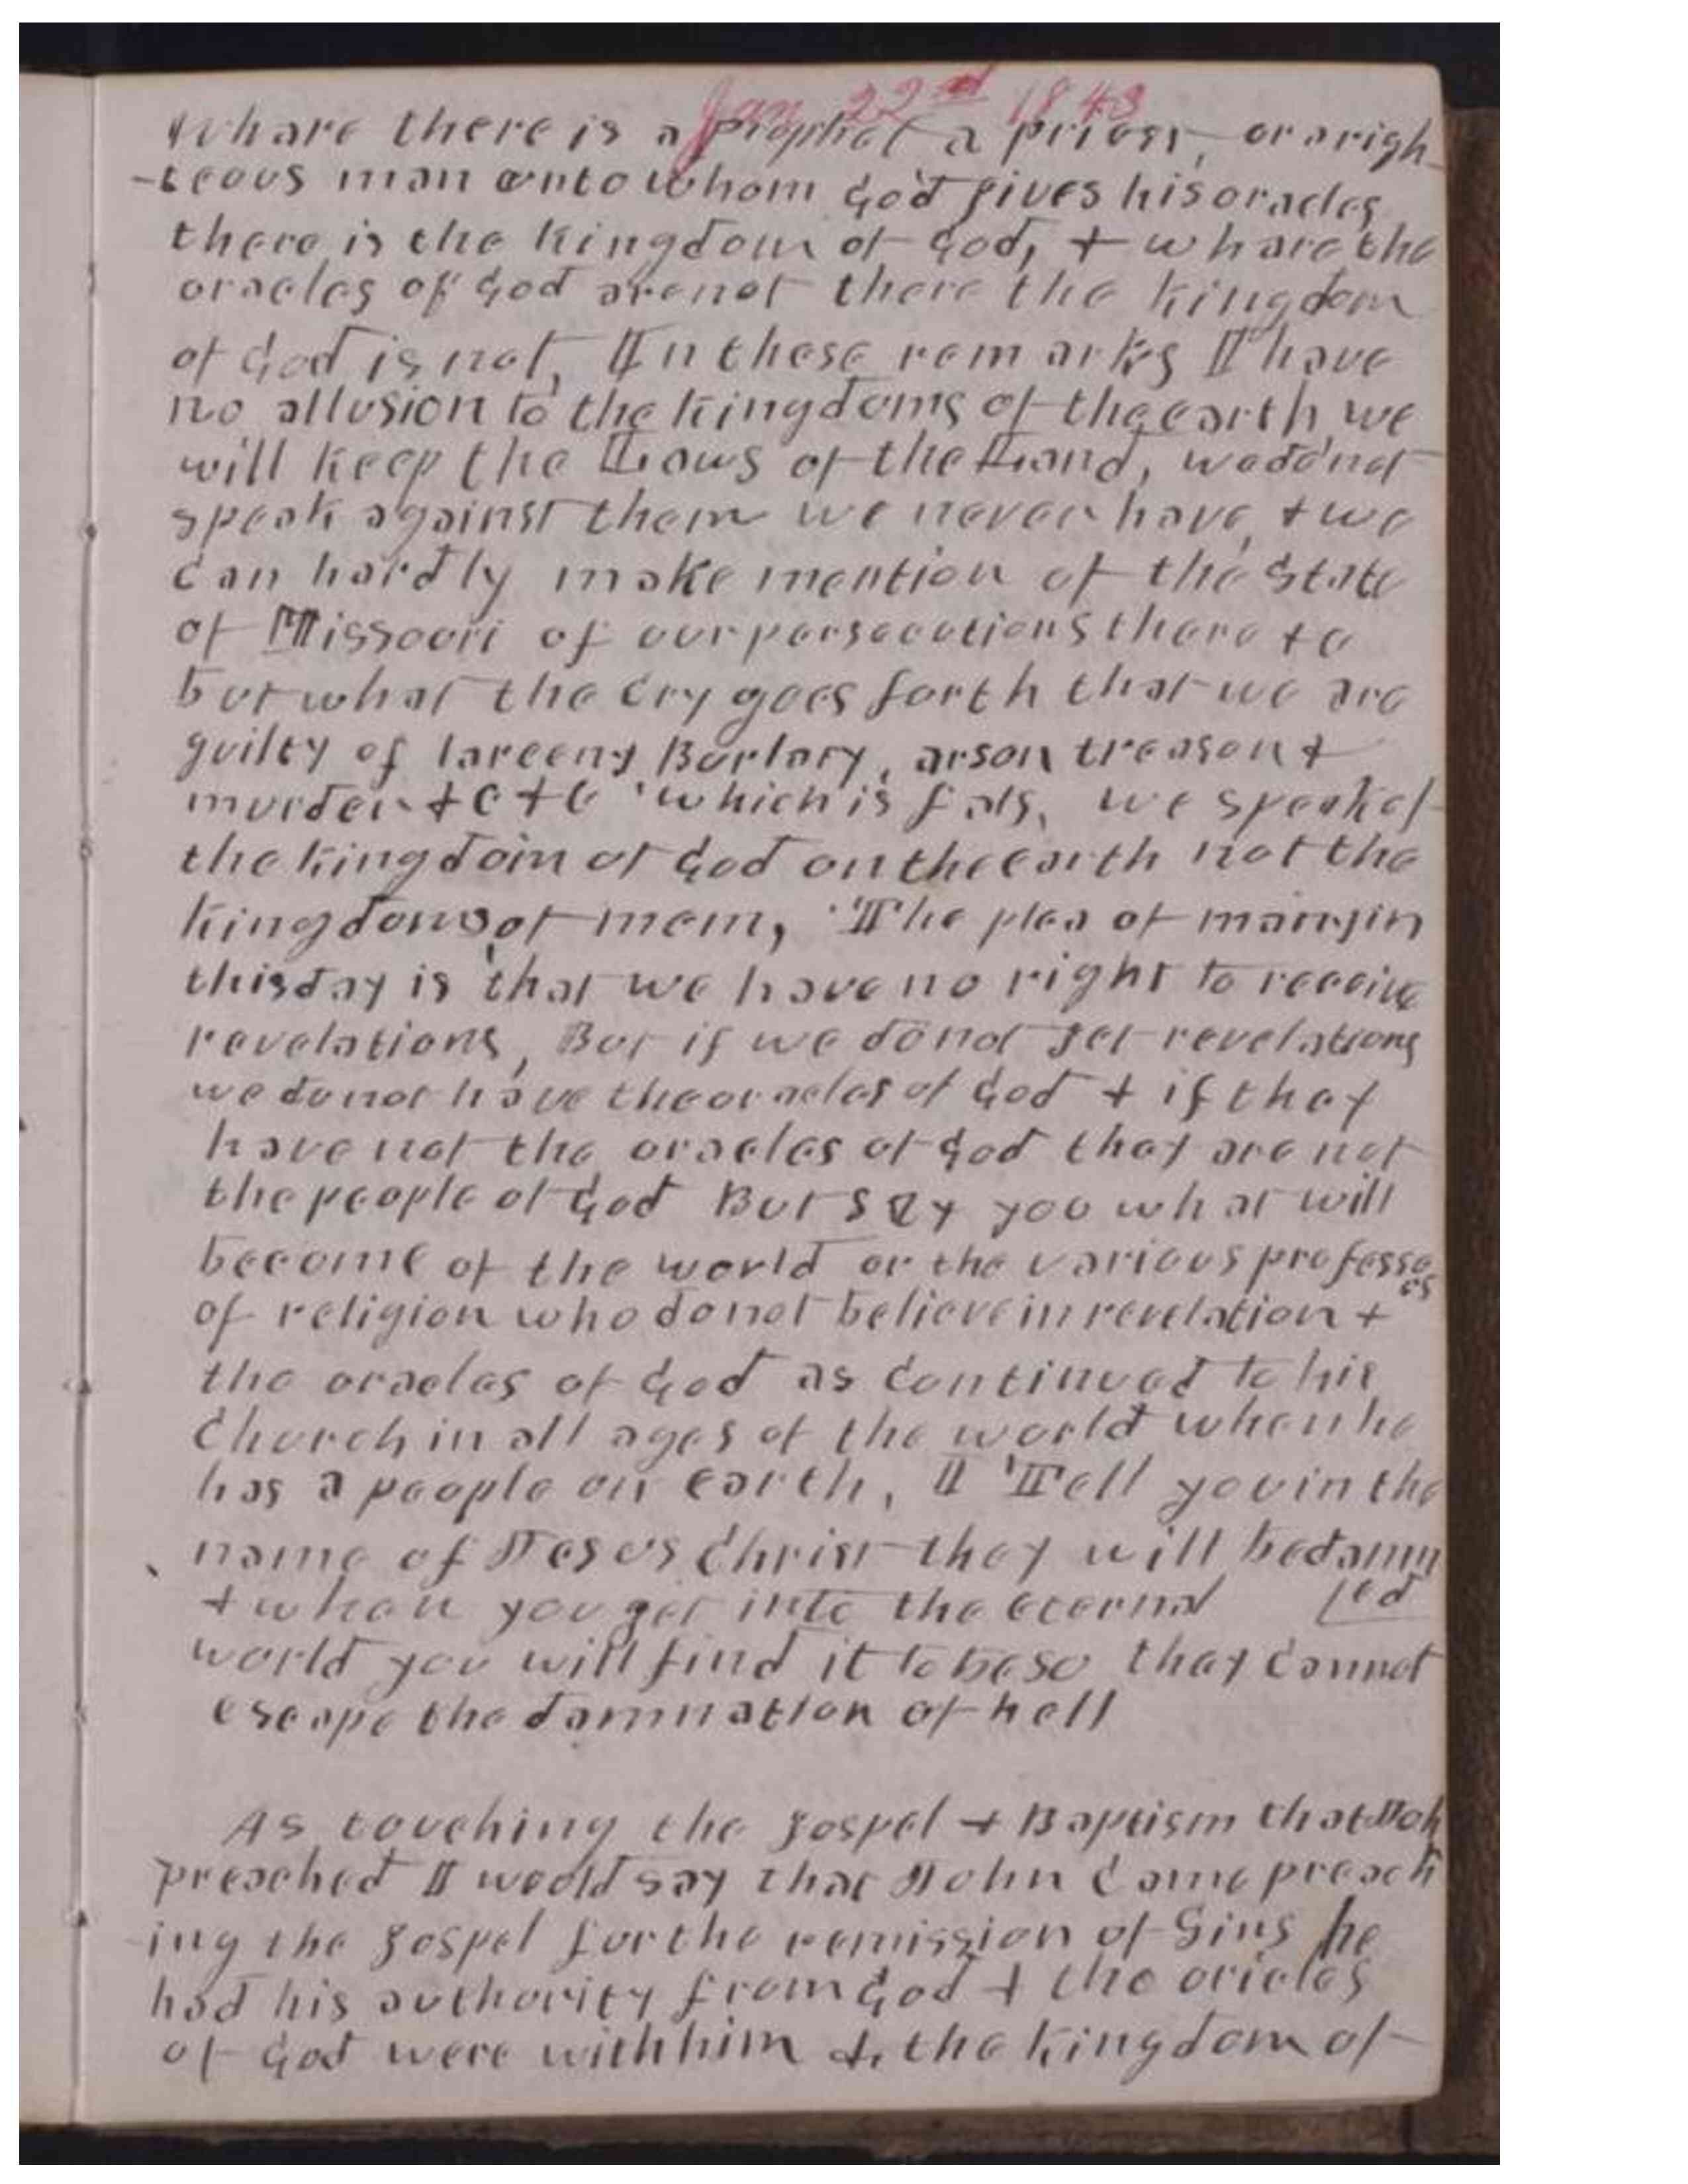 Jan 22nd 1843
Whare there is a Prophet a priest, or a righ
-teous man unto whom God gives his oracles
there is the kingdom of God, + whare the
oracles of God are not there the kingdom
of God is not, In these remarks I have
no allusion to the kingdoms of the earth we
will keep the Laws of the Land, we do not
speak against them we never have, + we
can hardly make mention of the State
of Missouri of our persecutions there +c
but what the cry goes forth that we are
guilty of larceny Burlary, arson treason +
murder +c +c which is fals, we speak of
the kingdom of God on the earth not the
kingdoms of mem, The plea of man in
this day is that we have no right to receive
revelations, But if we do not get revelations
we do not have the oracles of God + if they
have not the oracles of God they are not
the people of God But say you what will
become of the world or the various professo
es
of religion who do not believe in revelation +
the oracles of God as continued to his
Church in all ages of the world when he
has a people on earth, I Tell you in the
name of Jesus Christ they will be damn
+ when you get into the eternal [ed
world you will find it to be so they cannot
escape the damnation of hell
As touching the gospel + Baptism that Joh
preached I would say that John came preach
ing the gospel for the remission of Sins he
had his authority from God + the oricles
of God were with him +, the kingdom of